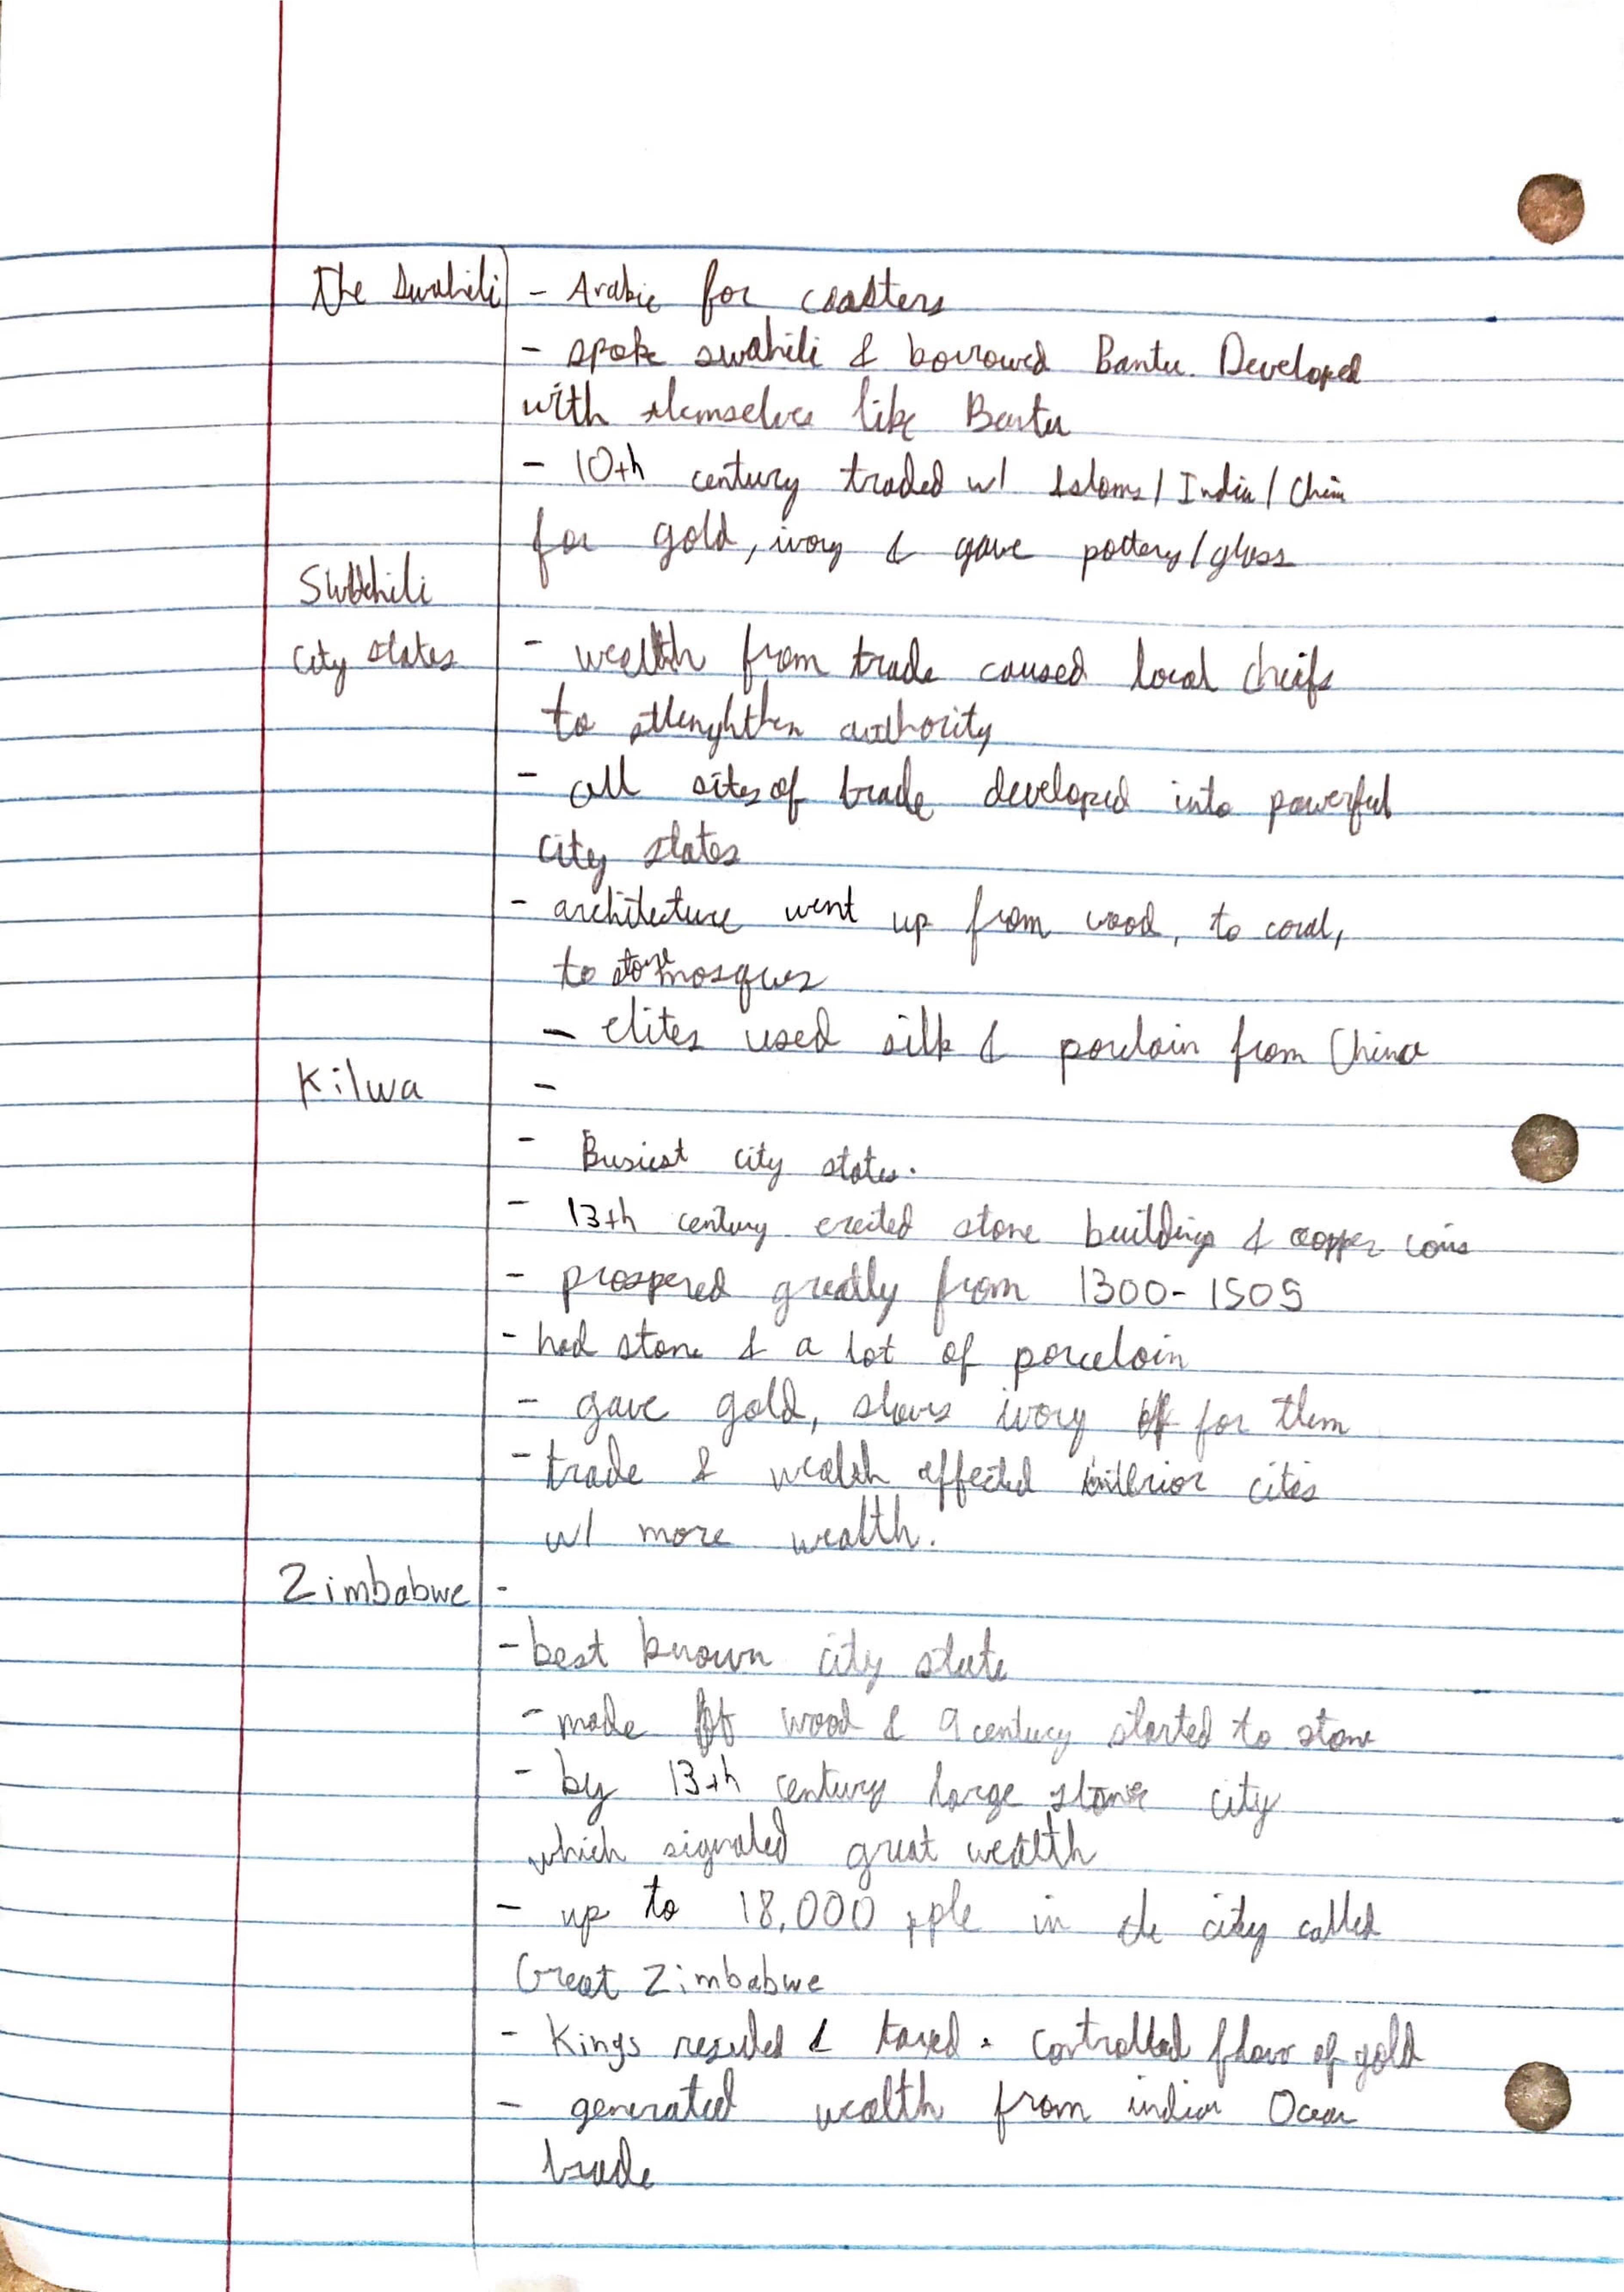 The Swahili - Arabic for coasters
- spoke swahili & borrowed Bantu. Developed
with themselves like Bantu
- 10th century traded w/ Islams / India / China
for gold, ivory & gave pottery / glass
Swahili
City states - wealth from trade caused local cheifs
to strenghthen authority
- all sites of trade developed into powerful
city states
- architecture went up from wood, to coral,
to stone mosques
- elites used silk & porclain from China
Kilwa -
- Busiest city state.
- 13th century erected stone buildings & copper coins
- prospered greatly from 1300-1505
- had stone & a lot of porcelain
- gave gold, slaves ivory for them
- trade & wealth affected interior cites
w/ more wealth.
Zimbabwe -
- best known city state
- made of wood & 9 century started to stone
- by 13th century large stone city
which signaled great wealth
- up to 18,000 pple in the city called
Great Zimbabwe
- Kings resided & taxed . controlled flow of gold
- generated wealth from indian Ocean
trade